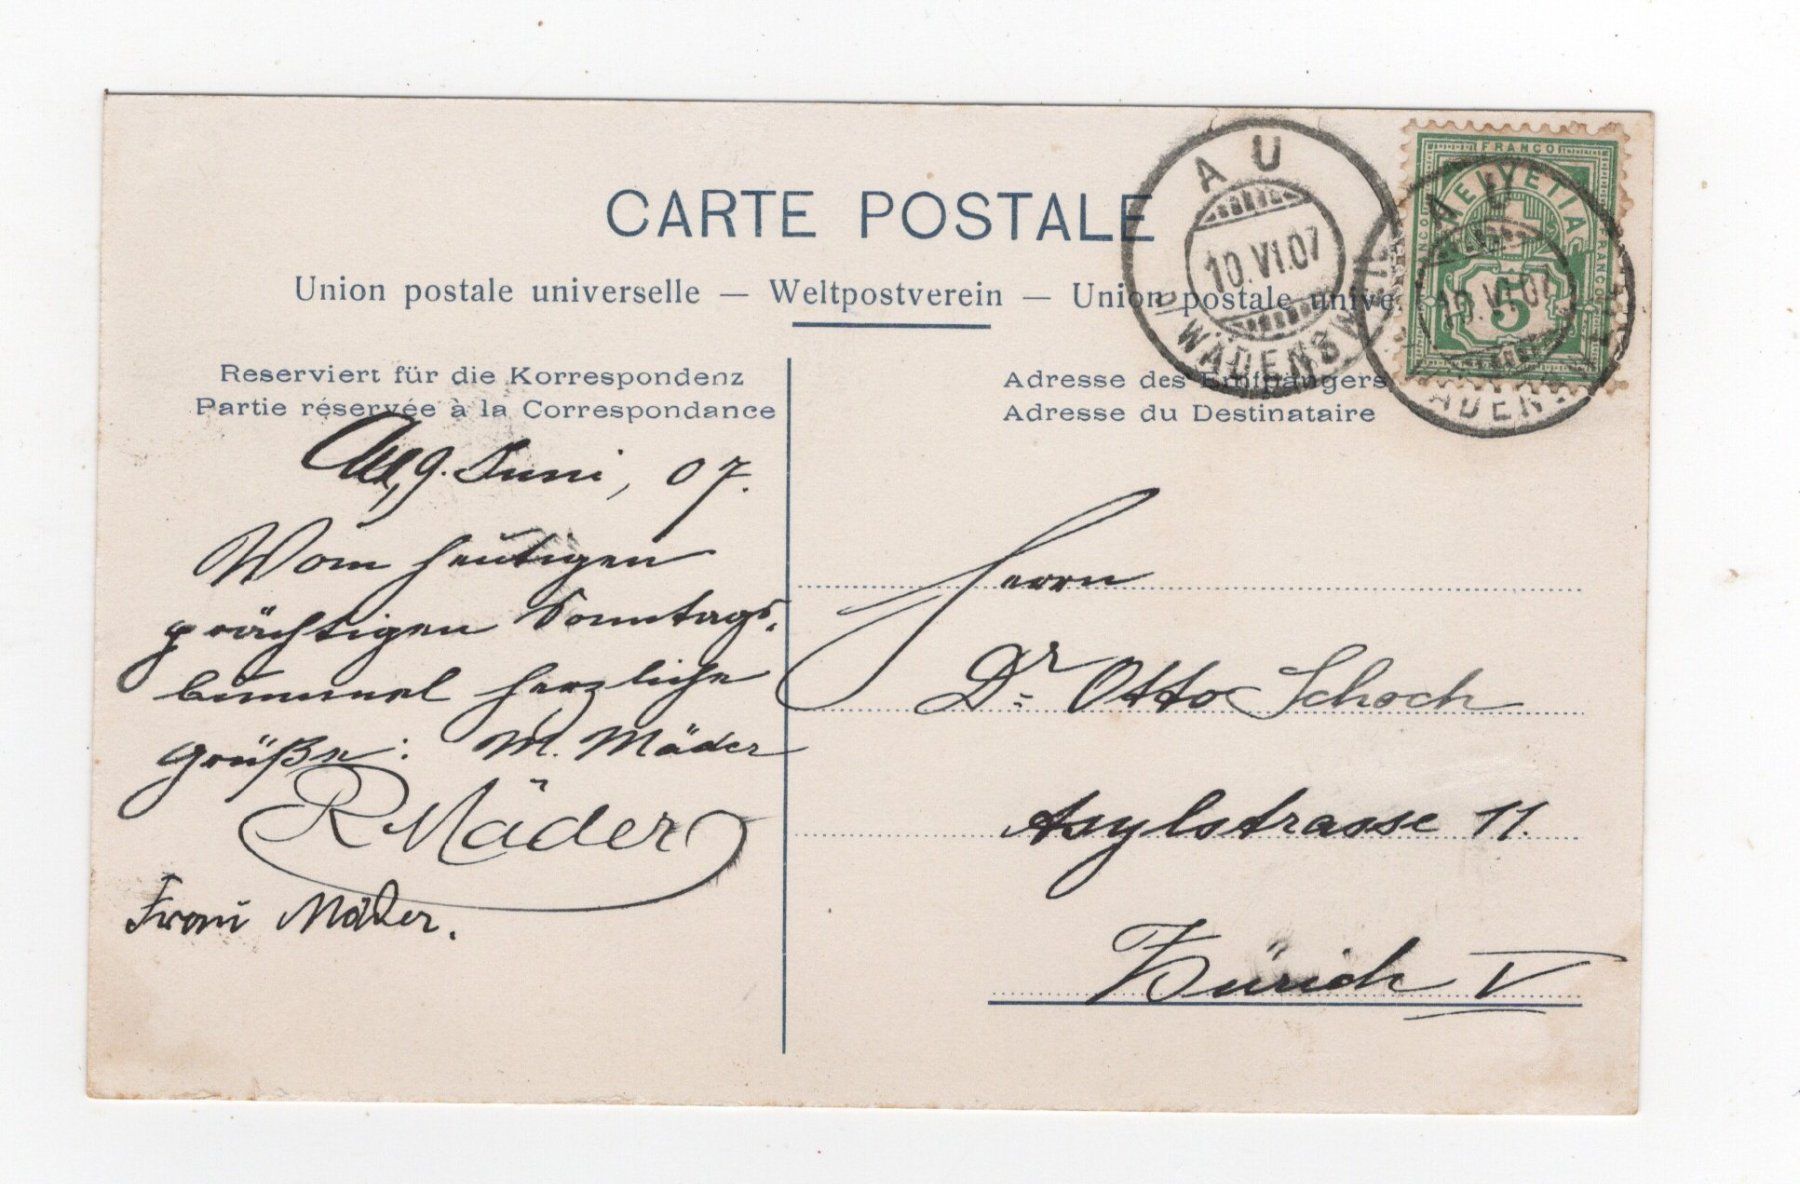 CARTE POSTALE
Union postale universelle — Weltpostverein — Union postale unive
Reserviert für die Korrespondenz
Partie réservée à la Correspondance
Adresse des Empfängers
Adresse du Destinataire
AU
10.VI.07
WÄDENSW
FRANCO
HELVETIA
FRANCO
FRANCO
5
AU
10.VI.07
ADENS
Au, 9. Juni, 07.
Vom heutigen
prächtigen Sonntags-
bummel herzliche
Grüße: M. Mäder
R Mäder
Frau Mäder.
Herrn
Dr. Otto Schoch
Asylstrasse 11.
Zürich V